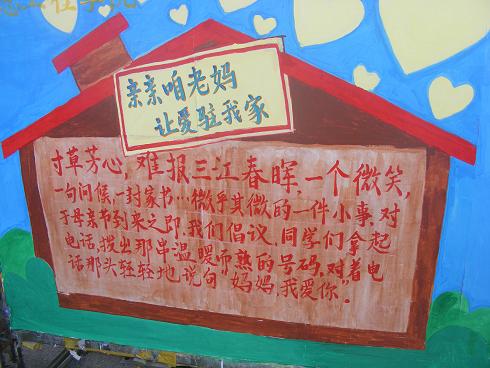 亲亲咱老妈
让爱驻我家
寸草芳心,难报三江春晖,一个微笑,
一句问候,一封家书…微乎其微的一件小事,对
于母亲节到来之即,我们倡议,同学们拿起
电话,拨出那串温暖而熟的号码,对着电
话那头轻轻地说句“妈妈,我爱你”。